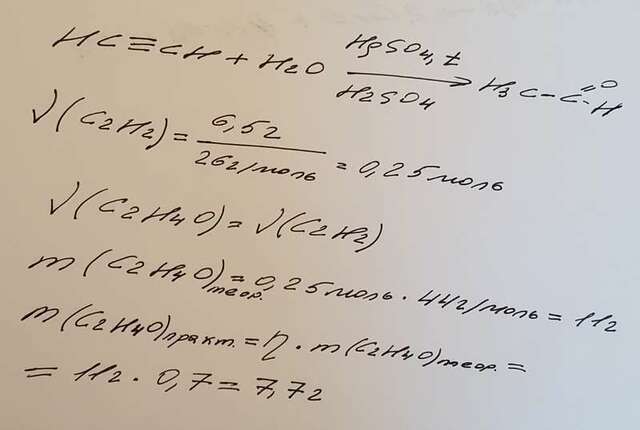 HC≡CH + H2O →(HgSO4, t / H2SO4) H3C-C(=O)-H
√(C2H2) = 6,5г / 26г/моль = 0,25моль
√(C2H4O) = √(C2H2)
m(C2H4O)теор. = 0,25моль · 44г/моль = 11г
m(C2H4O)практ. = η · m(C2H4O)теор. =
= 11г · 0,7 = 7,7г